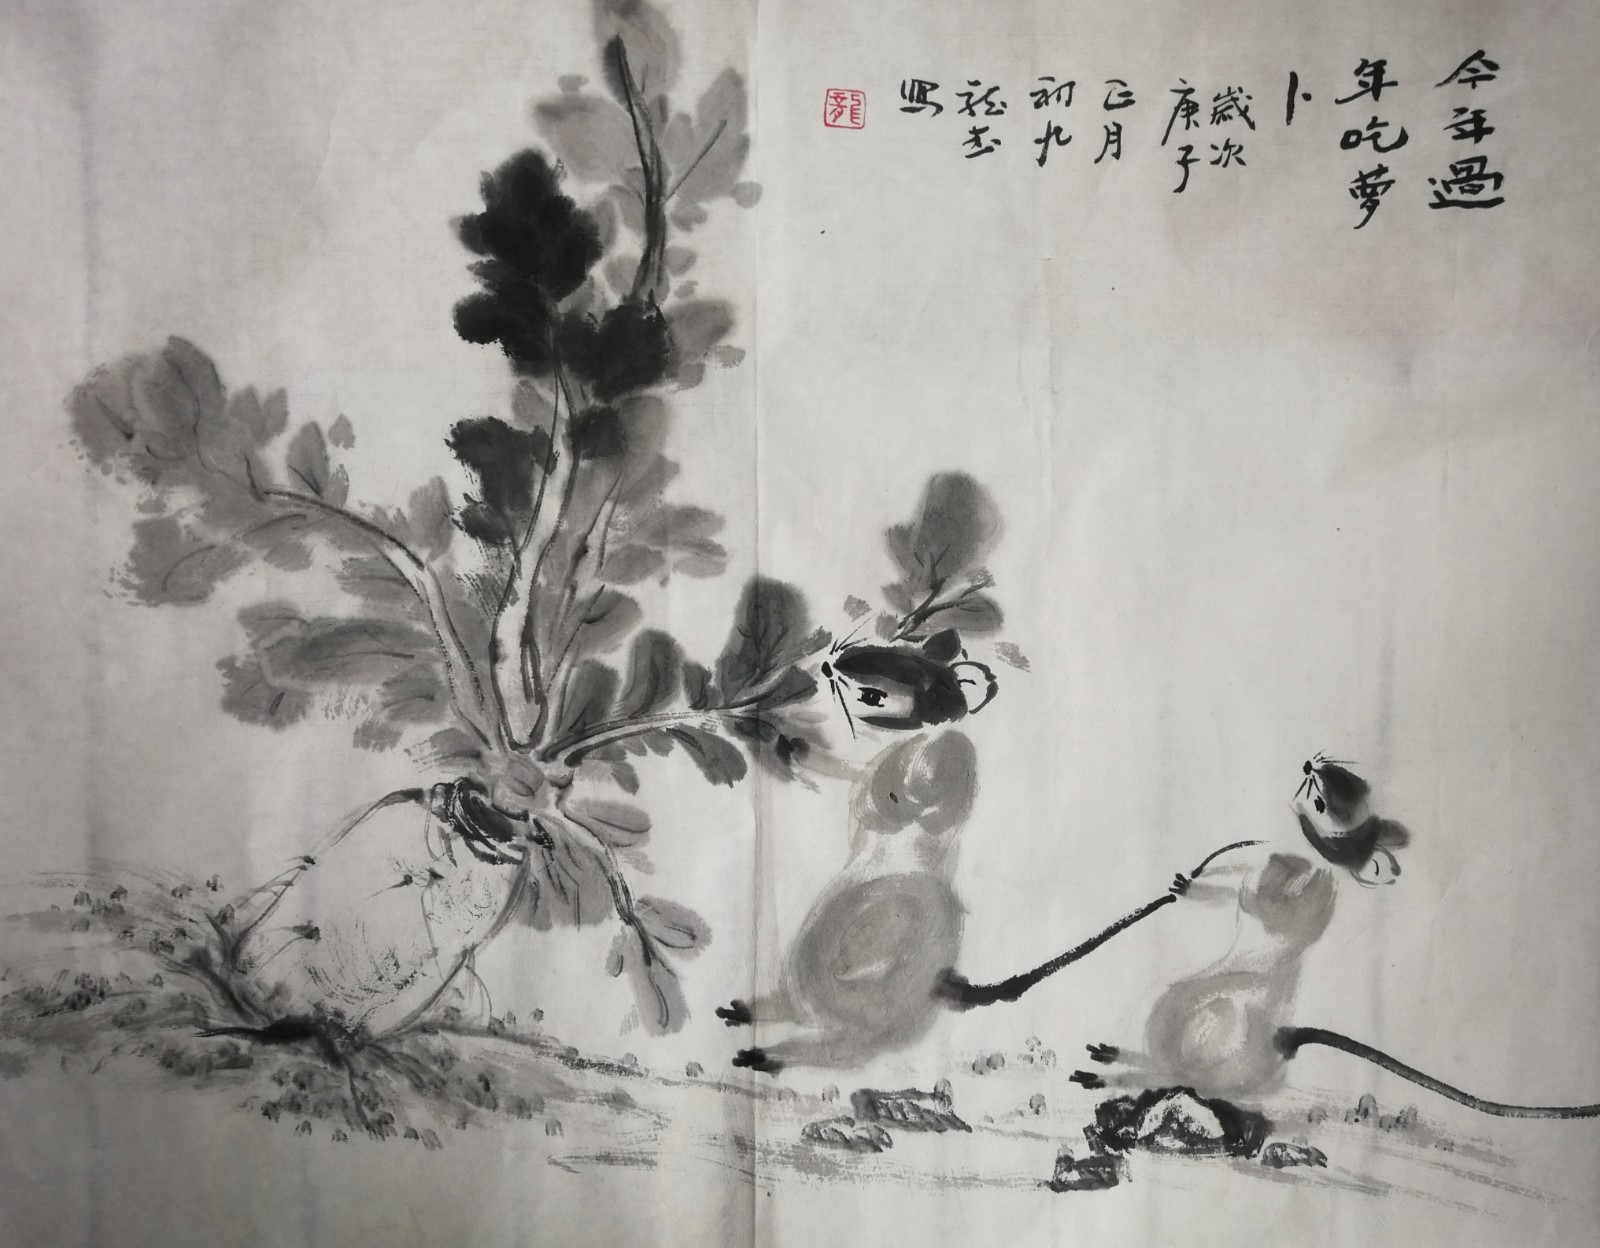 今年過
年吃萝
卜
歲次
庚子
正月
初九
寫
龍